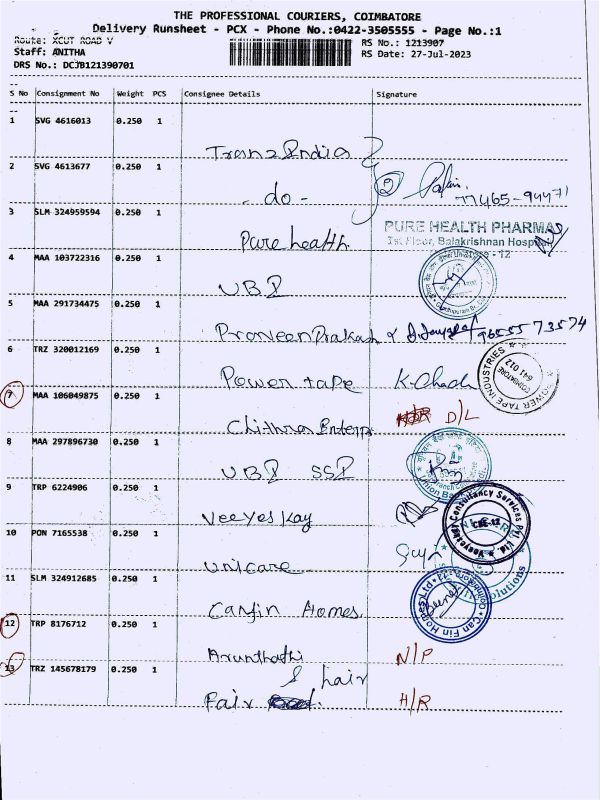 THE PROFESSIONAL COURIERS, COIMBATORE
Delivery Runsheet - PCX - Phone No.:0422-3505555 - Page No.:1
Route: XCUT ROAD V
RS No.: 1213907
Staff: ANITHA
RS Date: 27-Jul-2023
DRS No.: DCJB121390701
S No Consignment No Weight PCS Consignee Details Signature
1 SVG 4616013 0.250 1
Tranz India
2 SVG 4613677 0.250 1
- do -
77465-94471
3 SLM 324959594 0.250 1
PURE HEALTH PHARMA
Pure health
1st Floor, Balakrishnan Hospital
4 MAA 103722316 0.250 1
UBI
5 MAA 291734475 0.250 1
Praveen Prakash &
6 TRZ 320012169 0.250 1
Power tape
POWER TAPE INDUSTRIES
COIMBATORE
641 012
7 MAA 106049875 0.250 1
Chithra Enterp
D/L
8 MAA 297896730 0.250 1
UBI SSI
9 TRP 6224906 0.250 1
Veeyes Kay
Consultancy Services Pvt. Ltd.
CBE-12
10 PON 7165538 0.250 1
Unicare
Solutions
11 SLM 324912685 0.250 1
Canfin Homes
Can Fin Homes Ltd
12 TRP 8176712 0.250 1
Arunthathi
N/P
13 TRZ 145678179 0.250 1
& hair
Fair
H/R